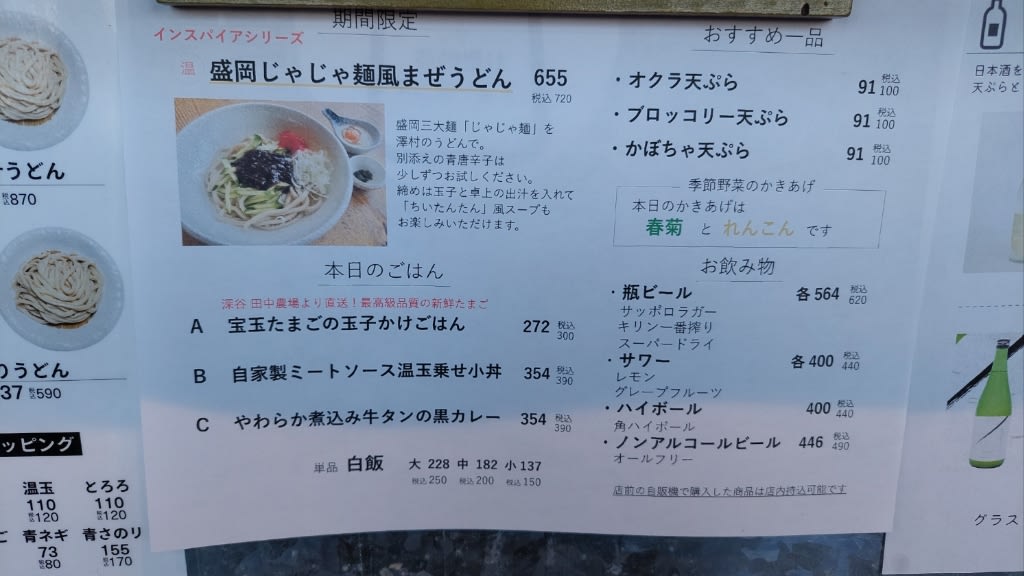 うどん
税込870
のうどん
37 税込590
ッピング
温玉 とろろ
110 110
税込120 税込120
青ネギ 青さのり
73 155
税込80 税込170
期間限定
インスパイアシリーズ
温 盛岡じゃじゃ麺風まぜうどん 655
税込720
盛岡三大麺「じゃじゃ麺」を
澤村のうどんで。
別添えの青唐辛子は
少しずつお試しください。
締めは玉子と卓上の出汁を入れて
「ちいたんたん」風スープも
お楽しみいただけます。
本日のごはん
深谷 田中農場より直送！最高級品質の新鮮たまご
A 宝玉たまごの玉子かけごはん 272 税込300
B 自家製ミートソース温玉乗せ小丼 354 税込390
C やわらか煮込み牛タンの黒カレー 354 税込390
単品 白飯 大 228 中 182 小 137
税込250 税込200 税込150
おすすめ一品
・オクラ天ぷら 91 税込100
・ブロッコリー天ぷら 91 税込100
・かぼちゃ天ぷら 91 税込100
季節野菜のかきあげ
本日のかきあげは
春菊 と れんこん です
お飲み物
・瓶ビール 各564 税込620
サッポロラガー
キリン一番搾り
スーパードライ
・サワー 各400 税込440
レモン
グレープフルーツ
・ハイボール 400 税込440
角ハイボール
・ノンアルコールビール 446 税込490
オールフリー
店前の自販機で購入した商品は店内持込可能です
日本酒を
天ぷらと
グラス